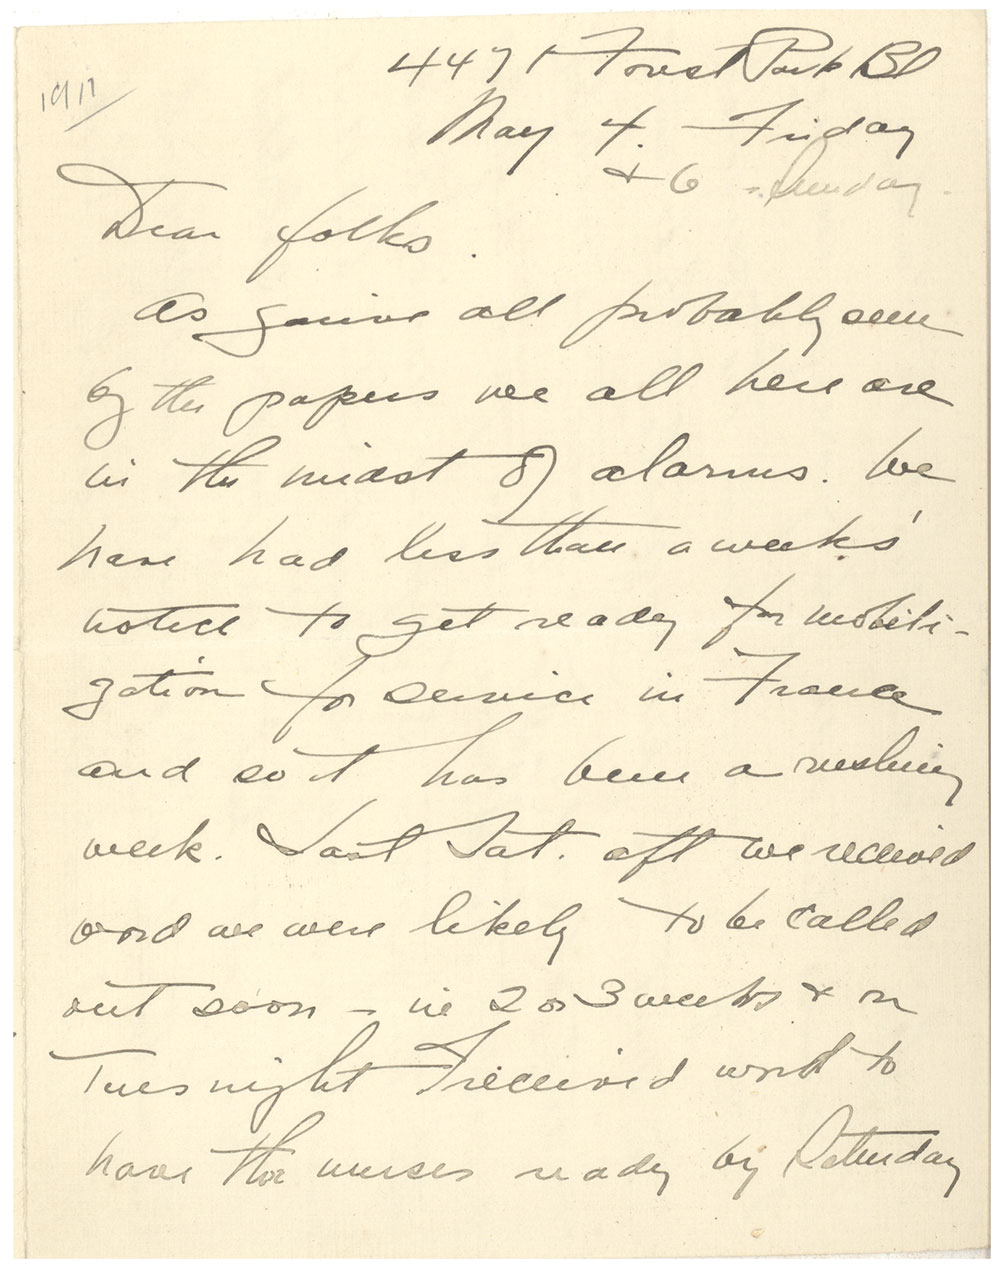 1917
4471 Forest Park Bl
May 4. Friday
+ 6 - Sunday.
Dear folks.
As you've all probably seen
by the papers we all here are
in the midst of alarms. We
have had less than a week's'
notice to get ready for mobili-
zation for service in France
and so it has been a rushing
week. Last Sat. aft we received
word we were likely to be called
out soon - in 2 or 3 weeks + on
Tues night I received word to
have the nurses ready by Saturday